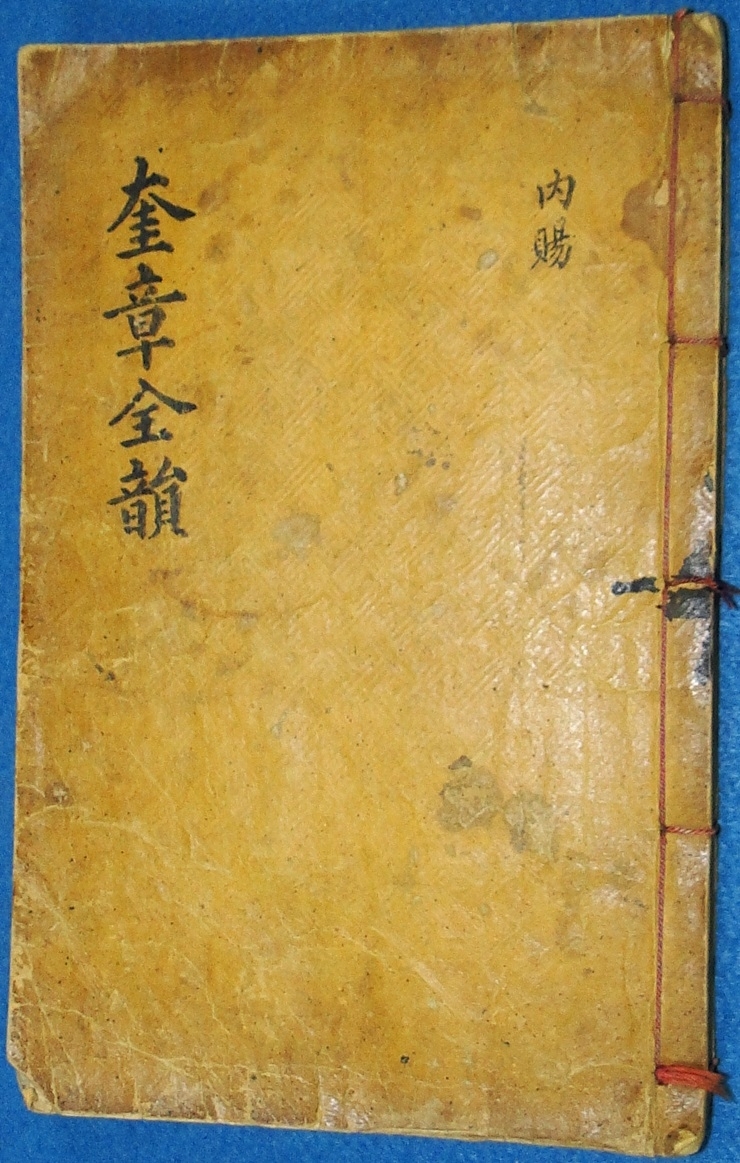 內賜
奎章全韻